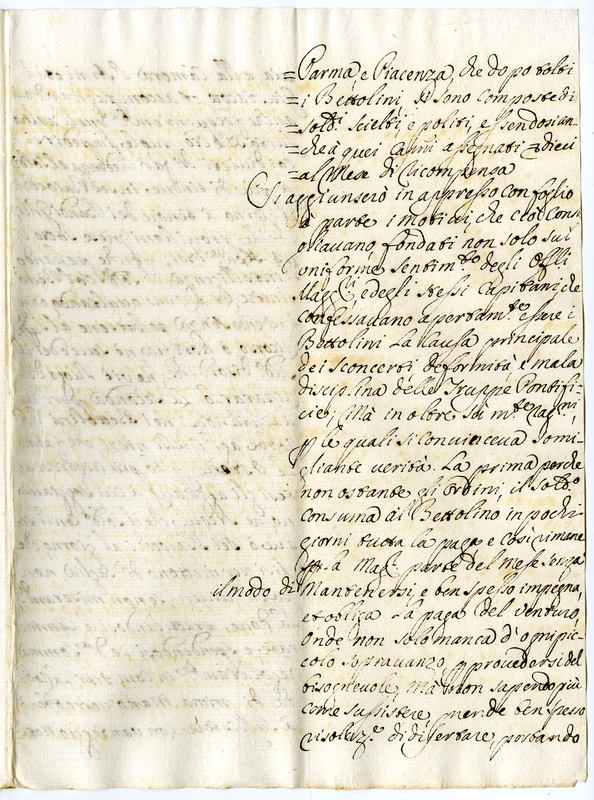 = Parma, e Piacenza, che dopo tolti
= i Bettolini, si sono composte di
= Sold.i scielti, e politi, essendosi an-
= che a quei Cap.ni assegnati dieci
= al Mese di Ricompensa
Si aggiunserò in appresso con foglio
a parte i motivi, che ciò Consi
gliavano, fondati non solo sul
uniforme sentim.to degli Offi.li
Magg.ri, e degli stessi Capitani che
confessavano apertam.te essere i
Bettolini La Causa principale
dei sconcerti deformità e mala
disciplina delle Truppe Pontifi-
cie; Mà in oltre su m.te ragni,
p le quali si convinceva somi
gliante verità. La prima perche
non ostante gli ordini, il Sold.o
consuma al Bettolino in pochi
giorni tutta la paga e così rimane
la Mag.r parte del mese senza
il modo di Mantenersi, e ben spesso impegna,
et obliga La paga del venturo,
onde non solo manca d'ogni pic-
colo sopravanzo, p provedersi del
bisognevole, mà non sapendo più
come sussistere, prende ben spesso
risoluz.e di disertare, portando